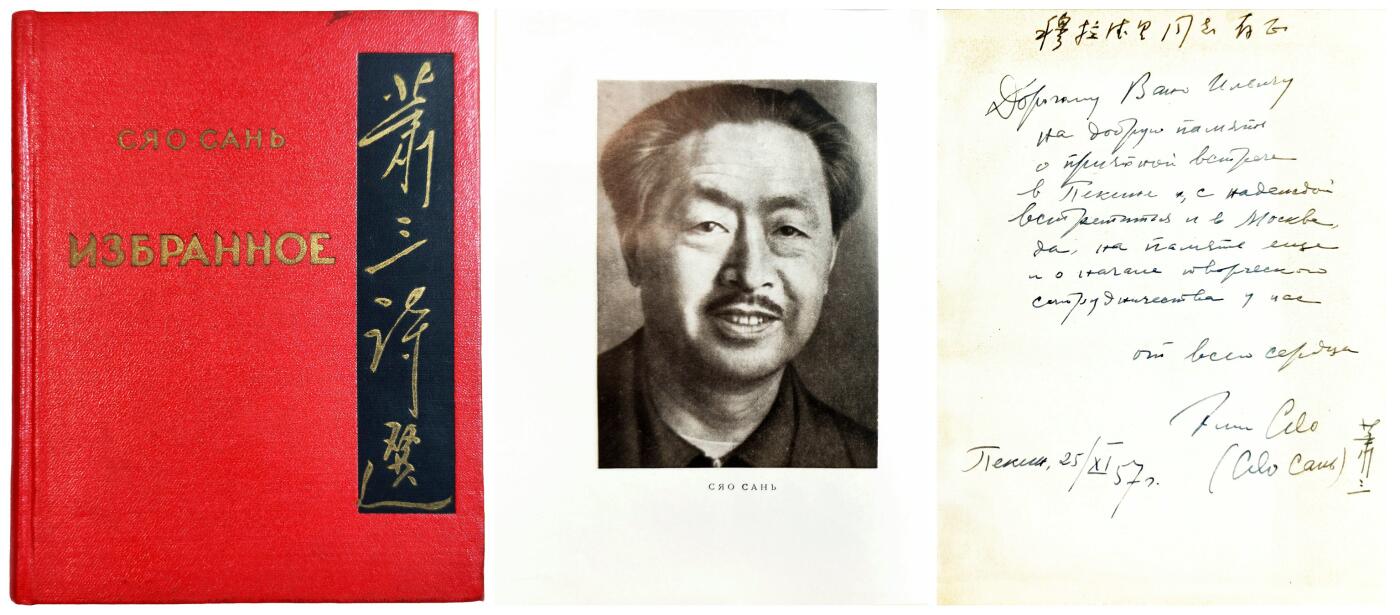 СЯО САНЬ
ИЗБРАННОЕ
蕭三詩選
СЯО САНЬ
穆拉傑里同志存正
Дорогому Вано Ильичу
на добрую память
о приятной встрече
в Пекине и, с надеждой
встретиться и в Москве,
да, на память еще
и о начале творческого
сотрудничества у нас
от всего сердца
Эми Сяо
(Сяо Сань)
蕭三
Пекин, 25/XI 57 г.